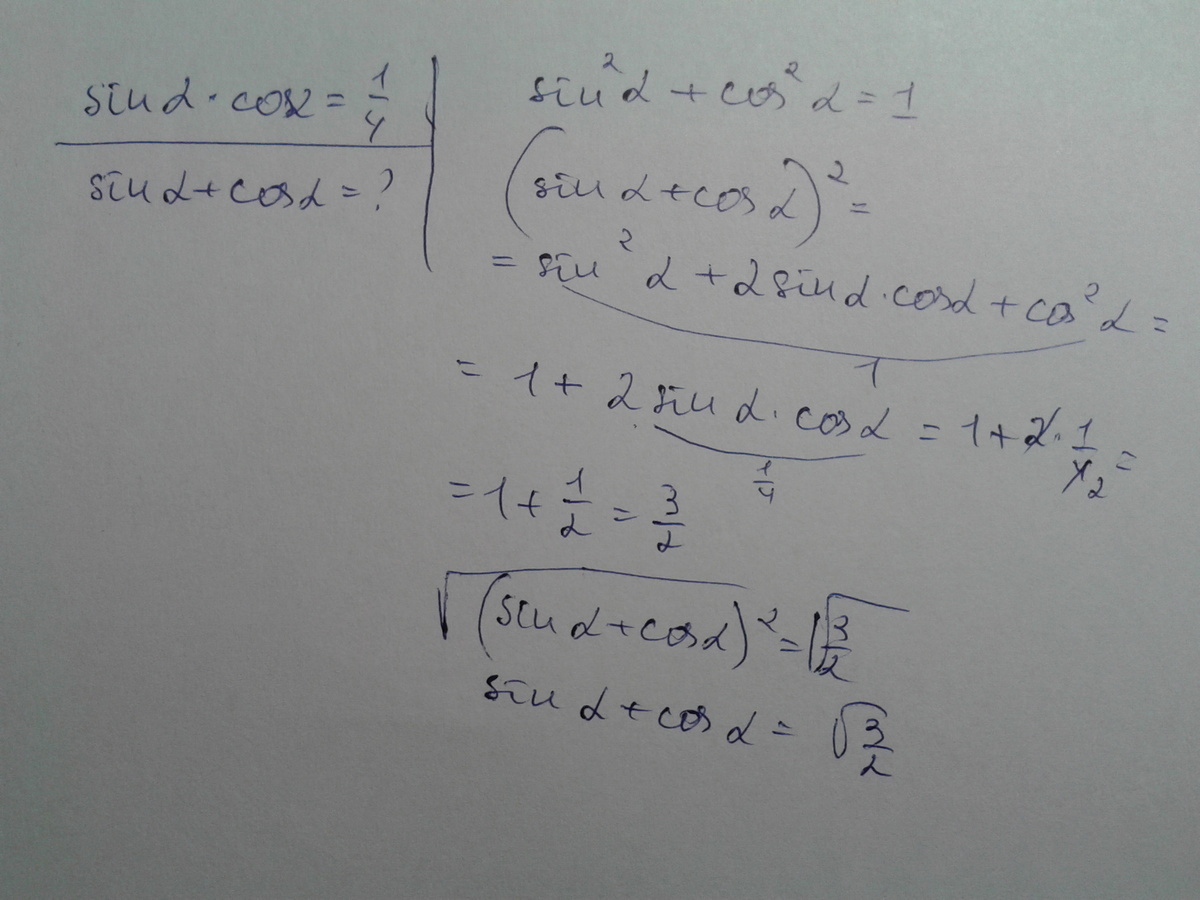 sin α · cos α = 1/4
sin α + cos α = ?
sin² α + cos² α = 1
(sin α + cos α)² =
= sin² α + 2 sin α · cos α + cos² α =
1
= 1 + 2 sin α · cos α = 1 + 2 · 1/4 2 =
1/4
= 1 + 1/2 = 3/2
√(sin α + cos α)² = √3/2
sin α + cos α = √3/2